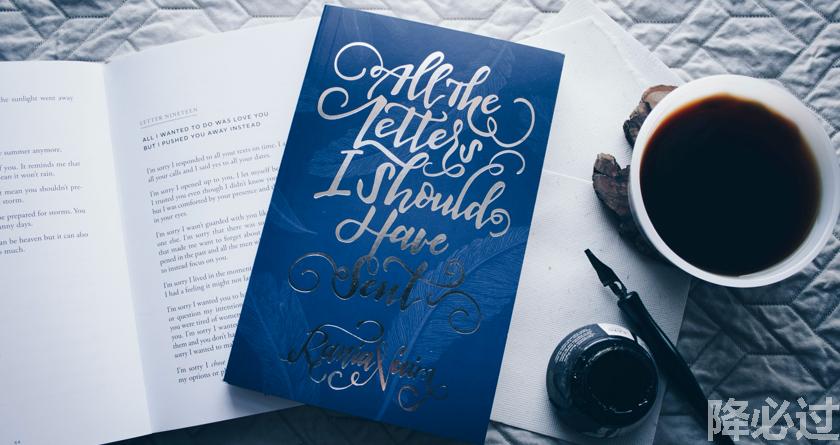 the sunlight went away
summer anymore.
f you. It reminds me that
ean it won't rain.
t mean you shouldn't pre-
storm.
be prepared for storms. You
nny days.
can be heaven but it can also
s much.
64
LETTER NINETEEN
ALL I WANTED TO DO WAS LOVE YOU
BUT I PUSHED YOU AWAY INSTEAD
I'm sorry I responded to all your texts on time. I
all your calls and I said yes to all your dates.
I'm sorry I opened up to you, I let myself be
I trusted you even though I didn't know you
but I was comforted by your presence and th
in your eyes.
I'm sorry I wasn't guarded with you like
one else. I'm sorry that there was so
that made me want to forget about
pened in the past and all the men w
to instead focus on you.
I'm sorry I lived in the moment
I had a feeling it might not las
I'm sorry I wanted you to b
or question my intention
you were tired of women
them and you don't ha
sorry I wanted to ma
I'm sorry I chose
my options or p
All The
Letters
I Should
Have
Sent
Rania Naim
降必过